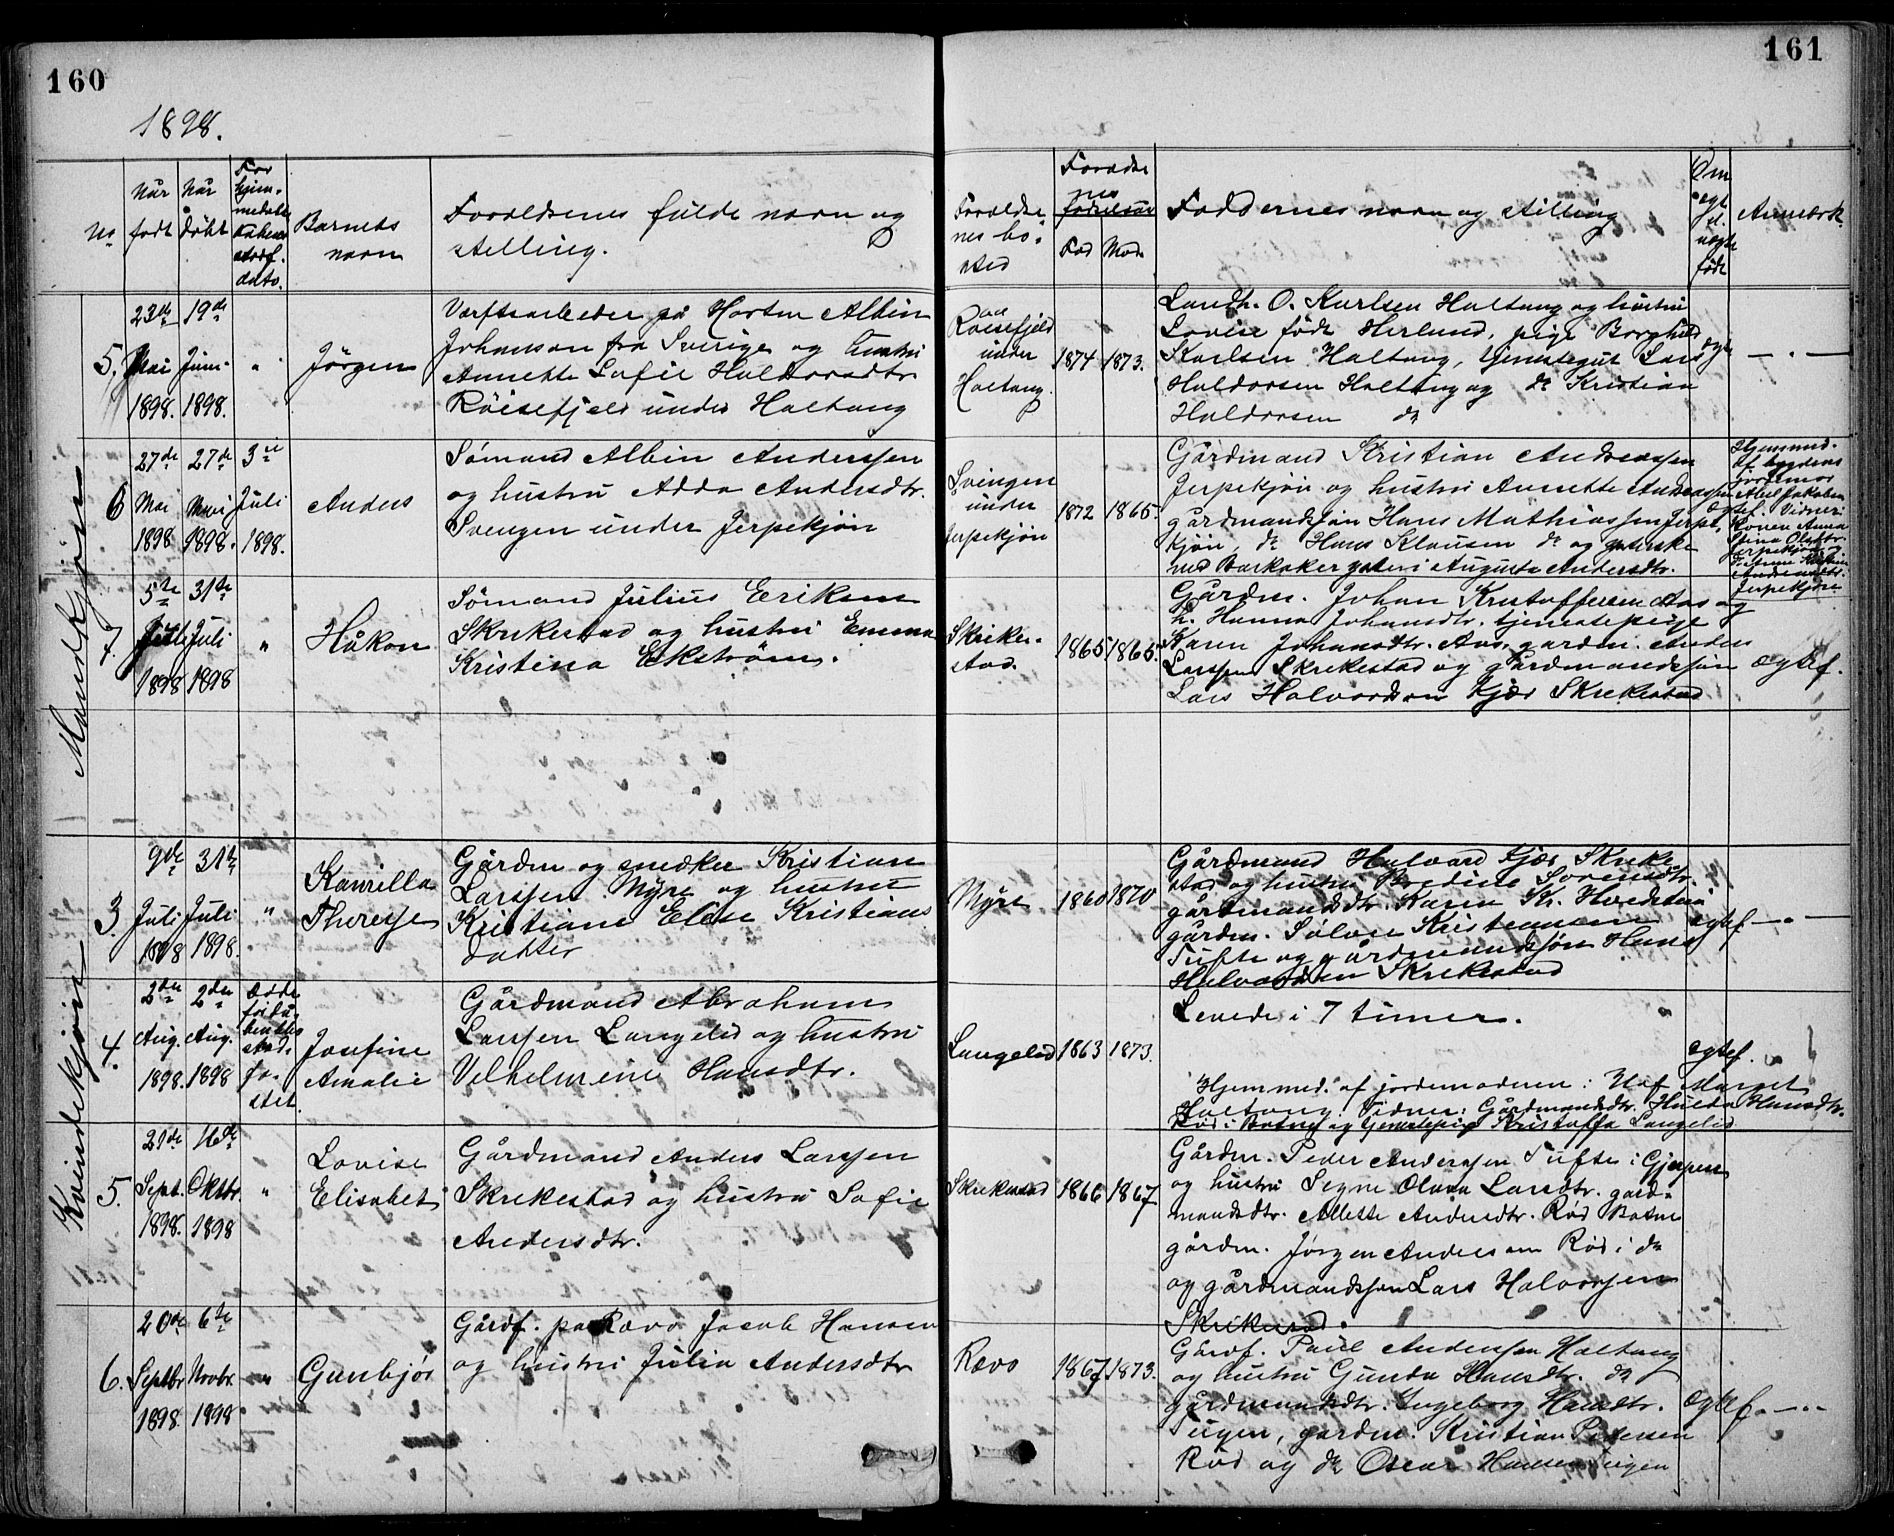 160
161
1898.
No
Når født
Når døbt
For hjem-
medøbte
dato.
Barnets navn
Forældrenes fulde navn og
stilling.
Forældre
nes bo-
sted
Forældre
nes
fødselsaar
Fad
Mod
Faddernes navn og stilling
Om
egt.
el.
uegte
født
Anmærk.
Mandkjøn
5.
23de
Mai
1898.
19de
Juni
1898.
"
Jörgen
Værftsarbeider på Horten Albin
Johanson fra Sverige og hustru
Annette Sofie Haldorsdtr.
Röisefjeld under Holtung
Röisefjeld
under
Holtung.
1874
1873.
Landh. O. Karlsen Holtung og hustru
Lovise født Herlund, pige Borghild
Karlsen Holtung, tjenestegut Lars
Haldorsen Holtung og do Kristian
Haldorsen do
egte
— " —
6
27de
Mai
1898
27de
Mai
1898.
3die
Juli
1898.
Anders
Sömand Albin Anderssen
og hustru Adda Andersdtr.
Svengen under Jerpekjön
Svengen
under
Jerpekjön
1872
1865.
Gårdmand Kristian Andreassen
Jerpekjön og hustru Annette Andreassen
gårdmandssön Hans Mathiassen Jerpe-
kjön, do Hans Klausen do og
ved Barkåker Augusta Andersdtr.
Egtef.
Hjemmed.
af bygdens
jordemor
Abel Jakobsen
Vidner:
Konen Anna
Stina Olsdtr.
Jerpekjön og
Andreasdtr.
Jerpekjön
7.
5te
Juli
1898
31te
Juli
1898
"
Håkon
Sömand Julius Eriksen
Skrikestad og hustru Emma
Kristina Ekström.
Skrike-
stad.
1865
1865.
Gårdm. Johan Kristoffersen Aas og
h. Hanna Johansdtr. tjenestepige
Karen Johansdtr. Aas, gårdm. Anders
Larssen Skrikestad og gårdmandssön
Lars Halvordsen Kjær Skrikestad
Egtef.
Kvindekjön
3.
9de
Juli
1898
31te
Juli
1898.
"
Kamilla
Therese
Gårdm og snedker Kristian
Larssen Myre og hustru
Kristiane Elise Kristians
datter
Myre
1860
1870
Gårdmand Halvard Kjær Skrike
stad og hustru Bredine Sorensdtr.
gårdmandsdtr. Karen Kr. Hvedsten
gårdm. Sölver Kristiansen
Tufte og gårdmandssön Hans
Halvardsen Skrikestad
egtef
— " —
4.
2den
Aug.
1898.
2den
Aug.
1898
Døde
før då-
ben blev
stad-
fæ-
stet.
Josefine
Amalie
Gårdmand Abraham
Larssen Langelid og hustru
Vilhelmine Hansdtr.
Langelid
1863
1873.
Levede i 7 timer.
egtef.
"
Hjemmed. af jordemoderen: Marget
Holtung. Vidner: Gårdmandsdtr. Hulda Hansdtr.
Rød i Botne og tjenestepige Kristoffa Langelid
5.
21de
Sept.
1898.
16de
Oktbr.
1898
"
Lovise
Elisabet
Gårdmand Anders Larssen
Skrikestad og hustru Sofie
Andersdtr.
Skrikestad
1866
1867
Gårdm. Peder Anderssen Tufte i Gjerpen
og hustru Signe Olava Larsdtr. gård-
mandsdtr. Allette Andersdtr. Rød Botne
gårdm. Jörgen Anderssen Rød i do
og gårdmandssön Lars Halvorsen
Skrikestad.
6.
20de
Septbr
1898.
6te
Novbr.
1898
"
Gunbjör
Gårdf. på Rævo Jacob Hansen
og hustru Julia Andersdtr
Rævo
1867
1873.
Gårdf. Paul Anderssen Holtung
og hustru Gunda Hansdtr. do
gårdmandsdtr. Ingeborg Hansdtr.
Tugen, gårdm. Kristian Pedersen
Rød og do Oscar Hansen Tugen
Egtef.
— " —